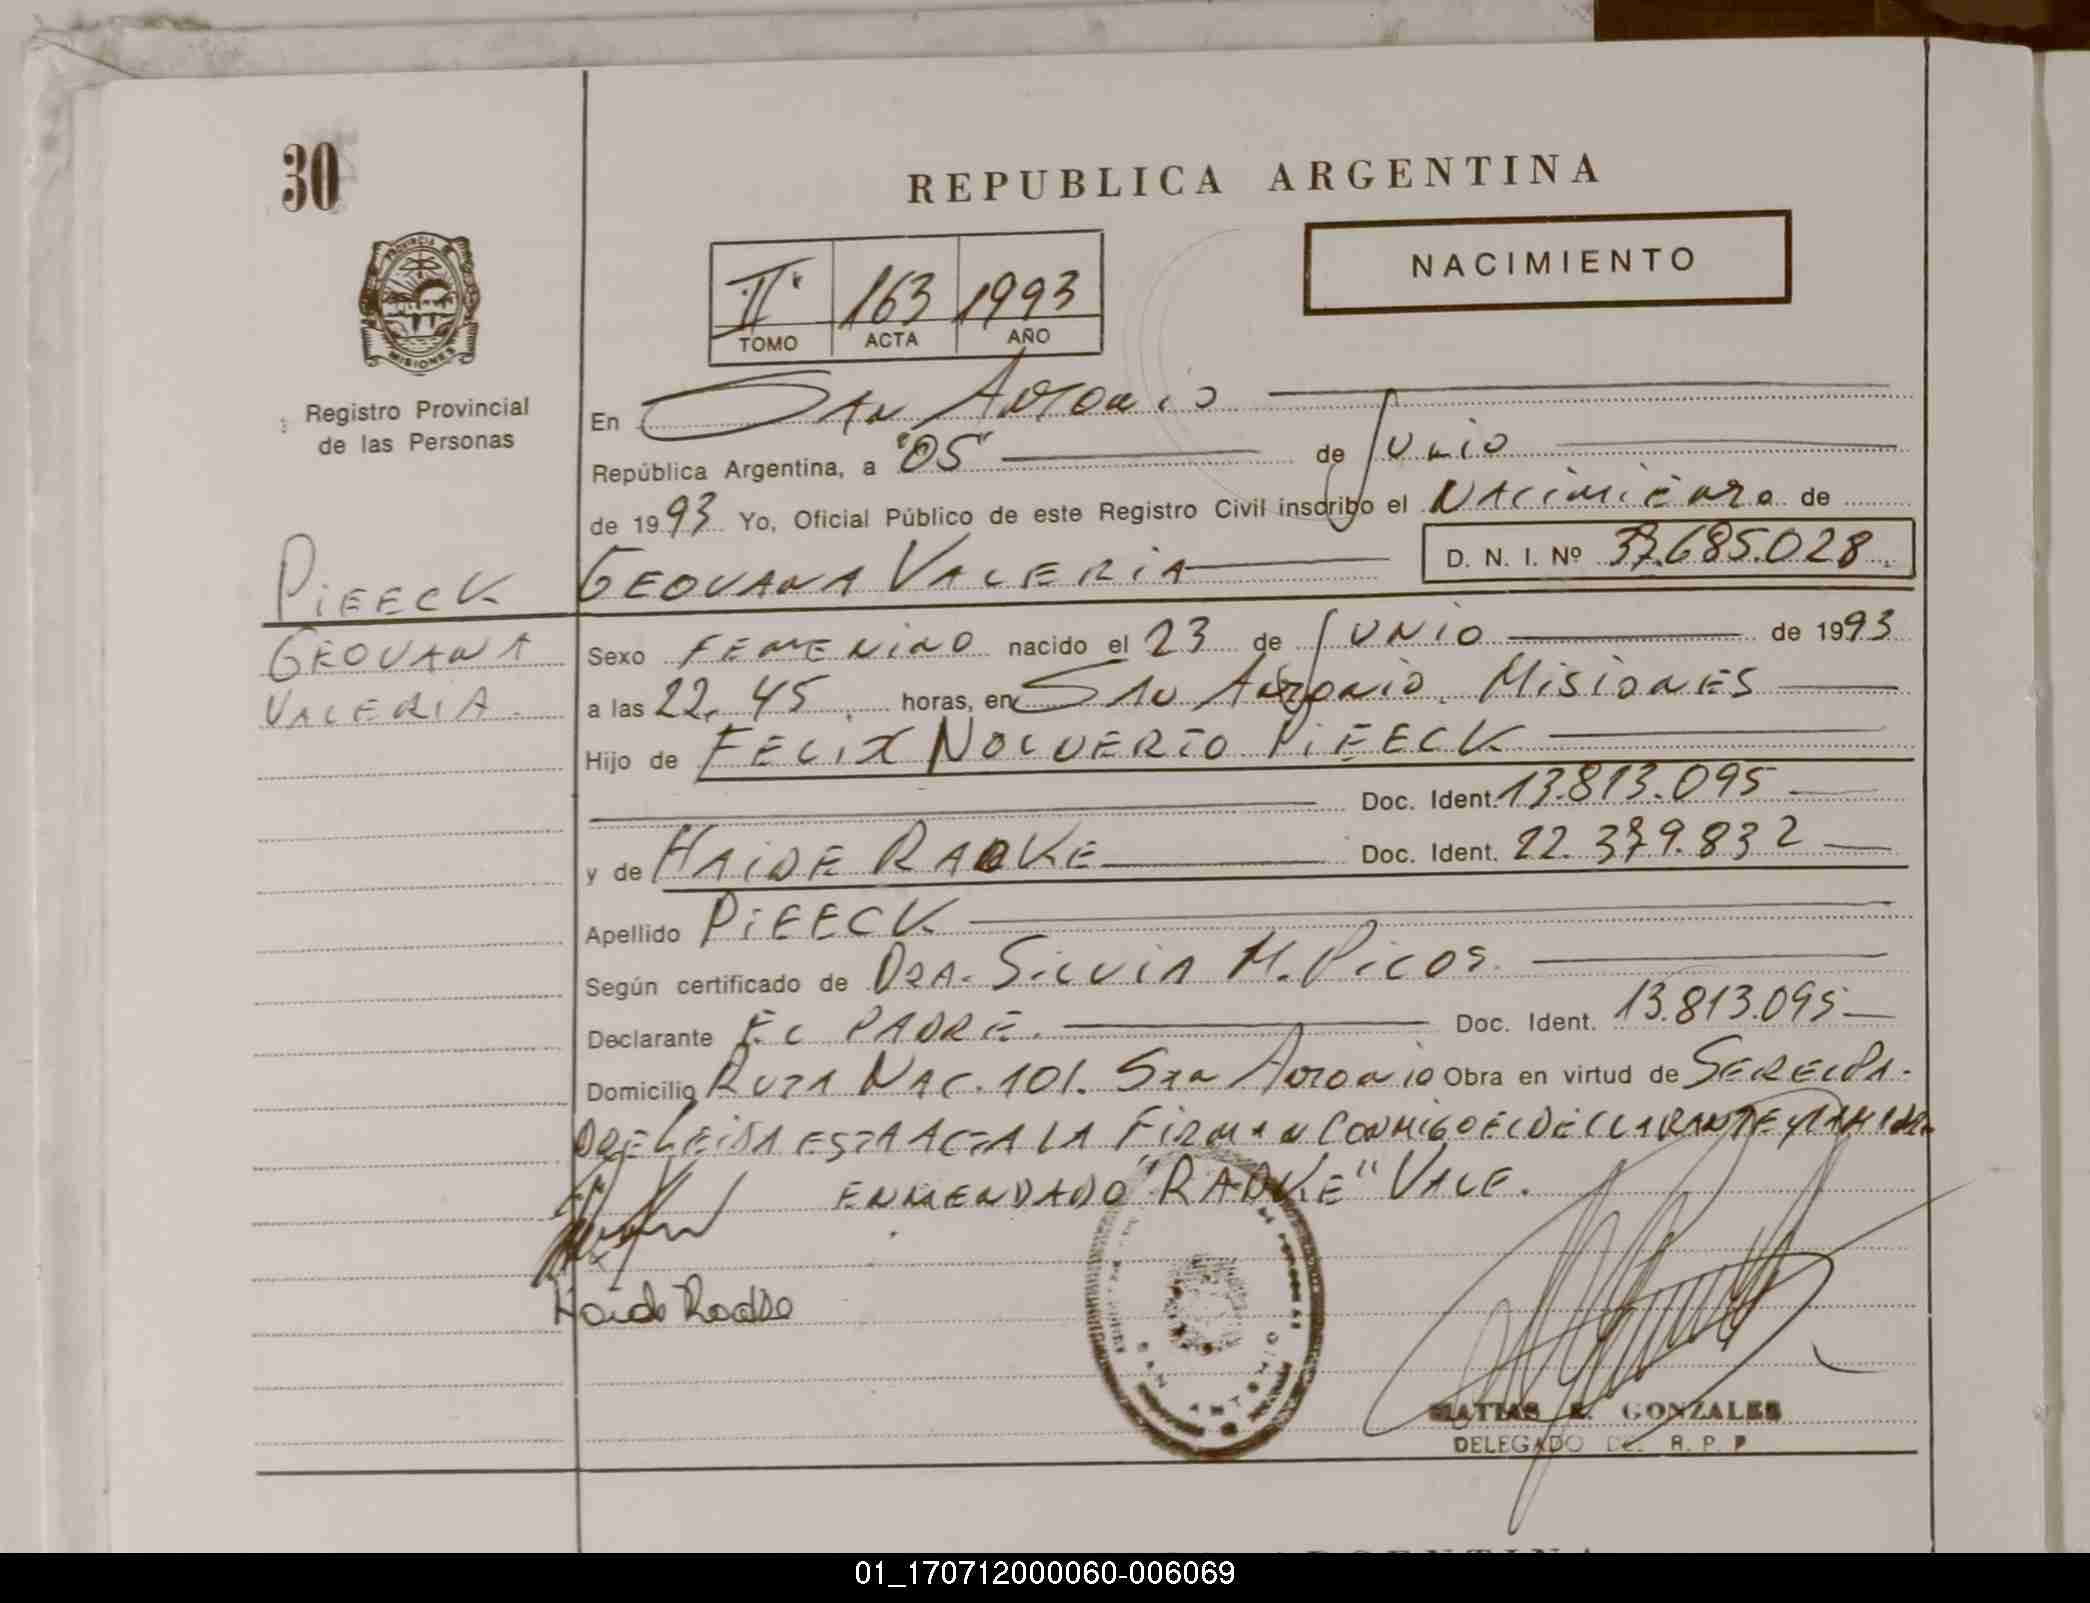 30
REPUBLICA ARGENTINA
NACIMIENTO
IIº 163 1993
TOMO ACTA AÑO
PROVINCIA DE
MISIONES
Registro Provincial
de las Personas
En San Antonio
República Argentina, a "05" de Junio
de 1993 Yo, Oficial Público de este Registro Civil inscribo el Nacimiento de
PiEECK
GEOVANA
VALERIA.
GEOVANA VALERIA D. N. I. Nº 37.685.028
Sexo FEMENINO nacido el 23 de JUNIO de 1993
a las 22,45 horas, en San Antonio. MISIONES
Hijo de FELIX NOLVERTO PiEECK
Doc. Ident. 13.813.095
y de HAIDE RADKE Doc. Ident. 22.379.832
Apellido PiEECK
Según certificado de DRA. SILVIA M. PICOS.
Declarante EL PADRE. Doc. Ident. 13.813.095
Domicilio RUTA NAC. 101. San Antonio Obra en virtud de SER EL PA-
DRE LEIDA ESTA ACTA LA FIRMAN CONMIGO EL DECLARANTE Y LA MADRE
ENMENDADO "RADKE" VALE.
MATIAS GONZALES
DELEGADO R. P. P
ARGENTINA
01_170712000060-006069